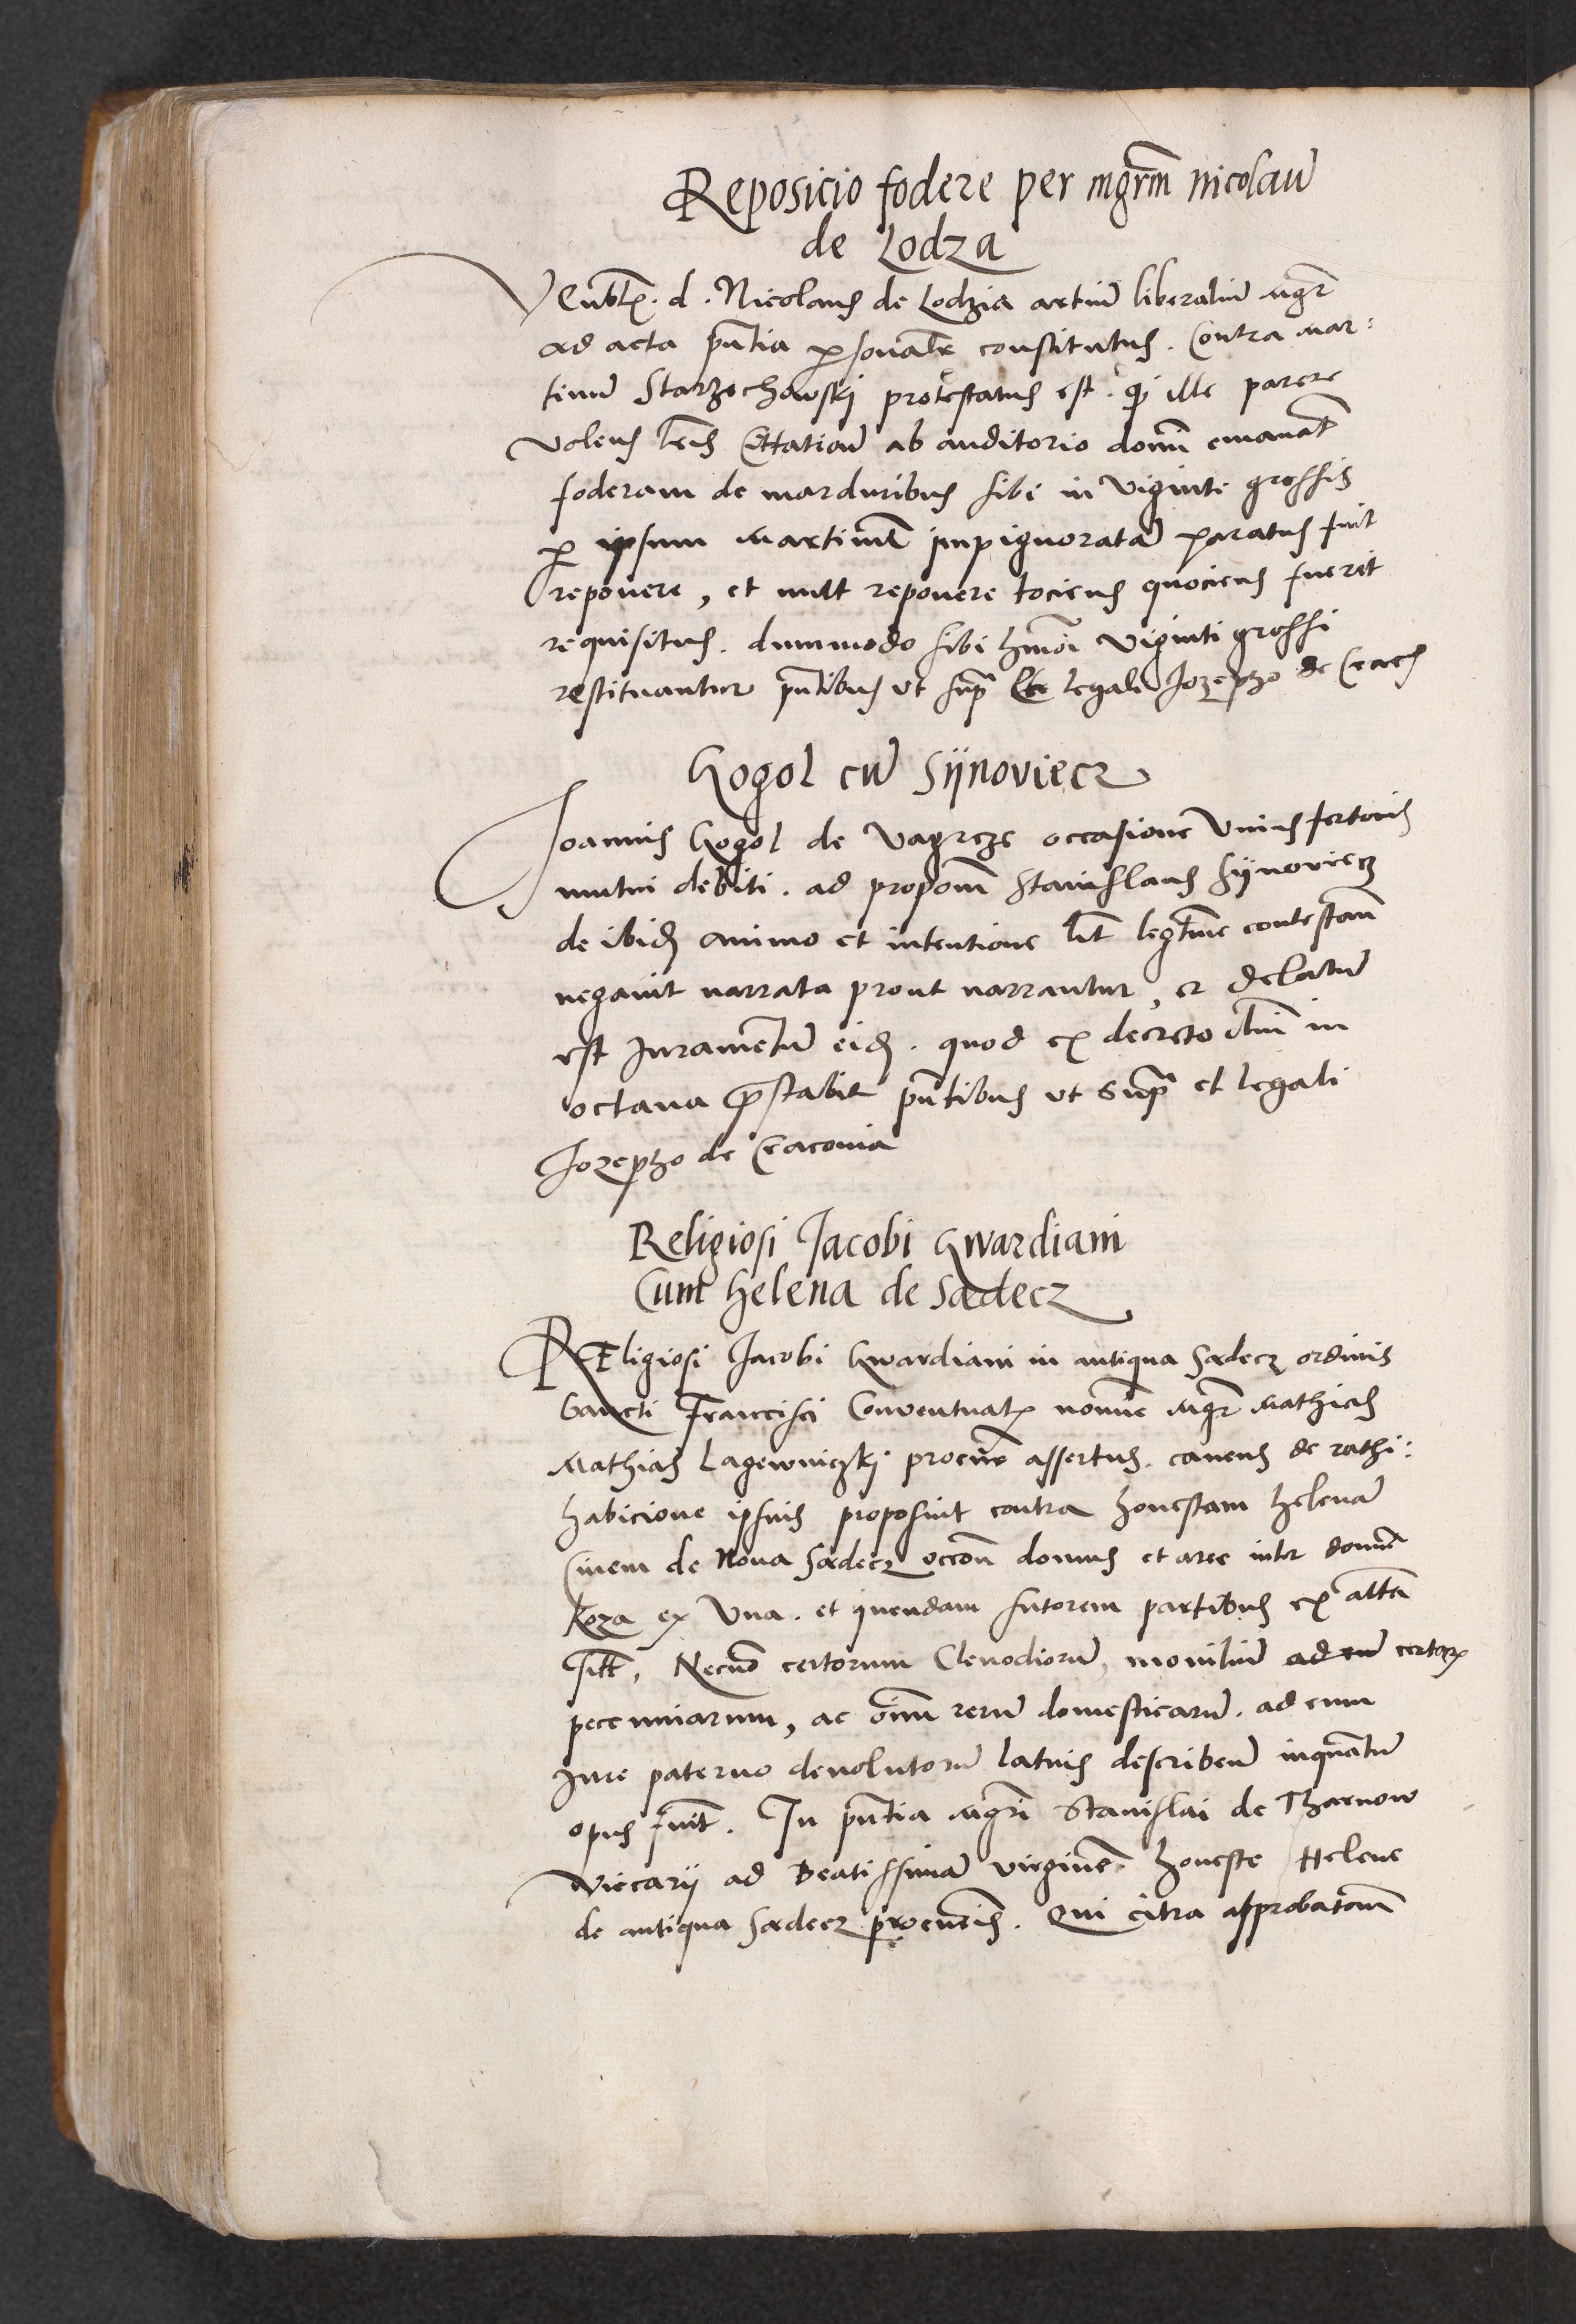 Reposicio fodere per mgrm nicolau
de Lodza
VEnbl. d. Nicolaus de Lodzia artiu liberaliu Mgr
ad acta pntia psonalr constitutus. Contra Mar:
tinu Starzechowski protestatus est. qz ille parere
volens lris Cittatiou ab auditorio domi emanat
foderam de marduribus sibi in viginti grossis
p ipsum Martinu impignoratam paratus fuit
reponere, et vult reponere tociens quociens fuerit
requisitus. dummodo sibi hmoi viginti grossi
restituantur pntibus ut supra et legali Jozepho de Crac
Gogol cu Sijnoviecz
Joannis Gogol de Vagreze occasione Unius fertonis
mutui debiti. ad propom Stanislaus Sijnoviecz
de ibid animo et intentione lit legtime contestan
negavit narrata prout narrantur, et delatu
est Jurametu eid. quod ex decreto dni in
octava prestabit pntibus ut supra et legali
Jozepho de Cracovia
Religiosi Jacobi Gwardiani
Cum helena de Sadecz
REligiosi Jacobi Gwardiani in antiqua Sadecz ordinis
Sancti Francisci Conventual nomine Mgr Mathias
Mathias Lagewniczki procur assertus. cavens de rathi:
habicione ipsius proposuit contra honestam helena
Civem de Nova Sadecz occon domus et aree inter domu
Koza ex Una. et quendam sutorem partibus ex altera
sitt, Necno certorum Clenodioru, moniliu ad eu certor
peccuniarum, ac oim reru domesticaru. ad eum
Jure paterno devolutoru latius describen inquantu
opus fuit. In pntia Mgri Stanislai de Tharnow
Viccarij ad Beatissima virgine honeste Helene
de antiqua Sadecz procuris. Qui citra approbatom